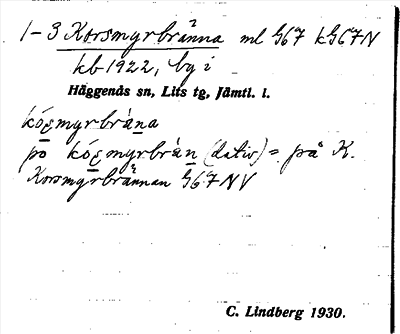 1-3 Korsmyrbränna ml §67 k§67N
kb 1922, by i
Häggenås sn, Lits tg, Jämtl. l.
kóʂmyrbrána
po kóʂmyrbrán (dativ) = på K.
Korsmyrbrännan §67NV
C. Lindberg 1930.